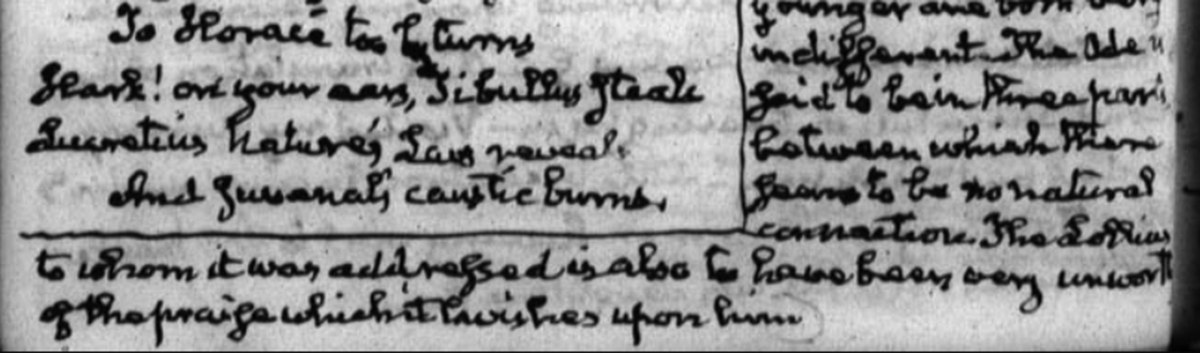 To Horace too by turns
Hark! on your ears, Tibullus steals
Lucretius nature's Laws reveal.
And Juvenal's caustic burns.
younger and both very
indifferent. The Ode
said to be in three
between which there
seems to be no natural
connection. The Lollius
to whom it was addressed is also to have been very
of the praise which it lavishes upon him